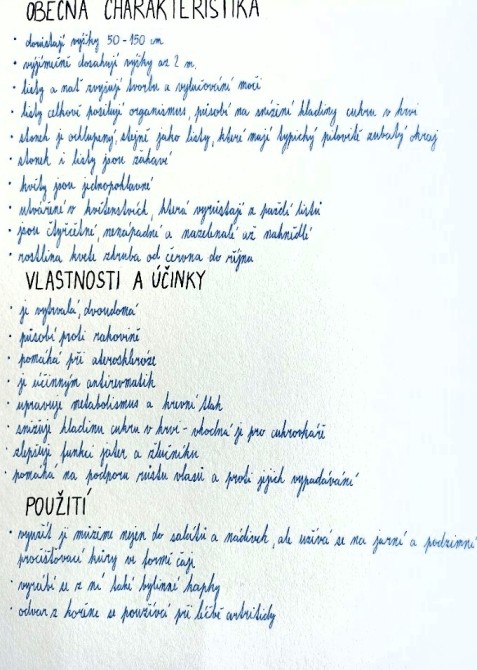 OBECNÁ CHARAKTERISTIKA
• dorůstají výšky 50-150 cm
• výjimečně dosahují výšky až 2 m.
• listy a nať zvyšují tvorbu a vylučování moči
• listy celkově posilují organismus, působí na snížení hladiny cukru v krvi
• stonek je ochlupený, stejně jako listy, které mají typický pilovitě zubatý okraj
• stonek i listy jsou žahavé
• květy jsou jednopohlavné
• utvářené v květenstvích, která vyrůstají z paždí listů
• jsou čtyřčetné, nenápadné a nazelenalé až nahnědlé
• rostlina kvete zhruba od června do října
VLASTNOSTI A ÚČINKY
• je vytrvalá, dvoudomá
• působí proti rakovině
• pomáhá při ateroskleróze
• je účinným antirevmatik
• upravuje metabolismus a krevní tlak
• snižuje hladinu cukru v krvi - vhodná je pro cukrovkáře
• zlepšuje funkci jater a žlučníku
• pomáhá na podporu růstu vlasů a proti jejich vypadávání
POUŽITÍ
• využít ji můžeme nejen do salátů a nádivek, ale užívá se na jarní a podzimní
pročišťovací kúry ve formě čaje
• vyrábí se z ní také bylinné kapky
• odvar z kořene se používá při léčbě artritidy